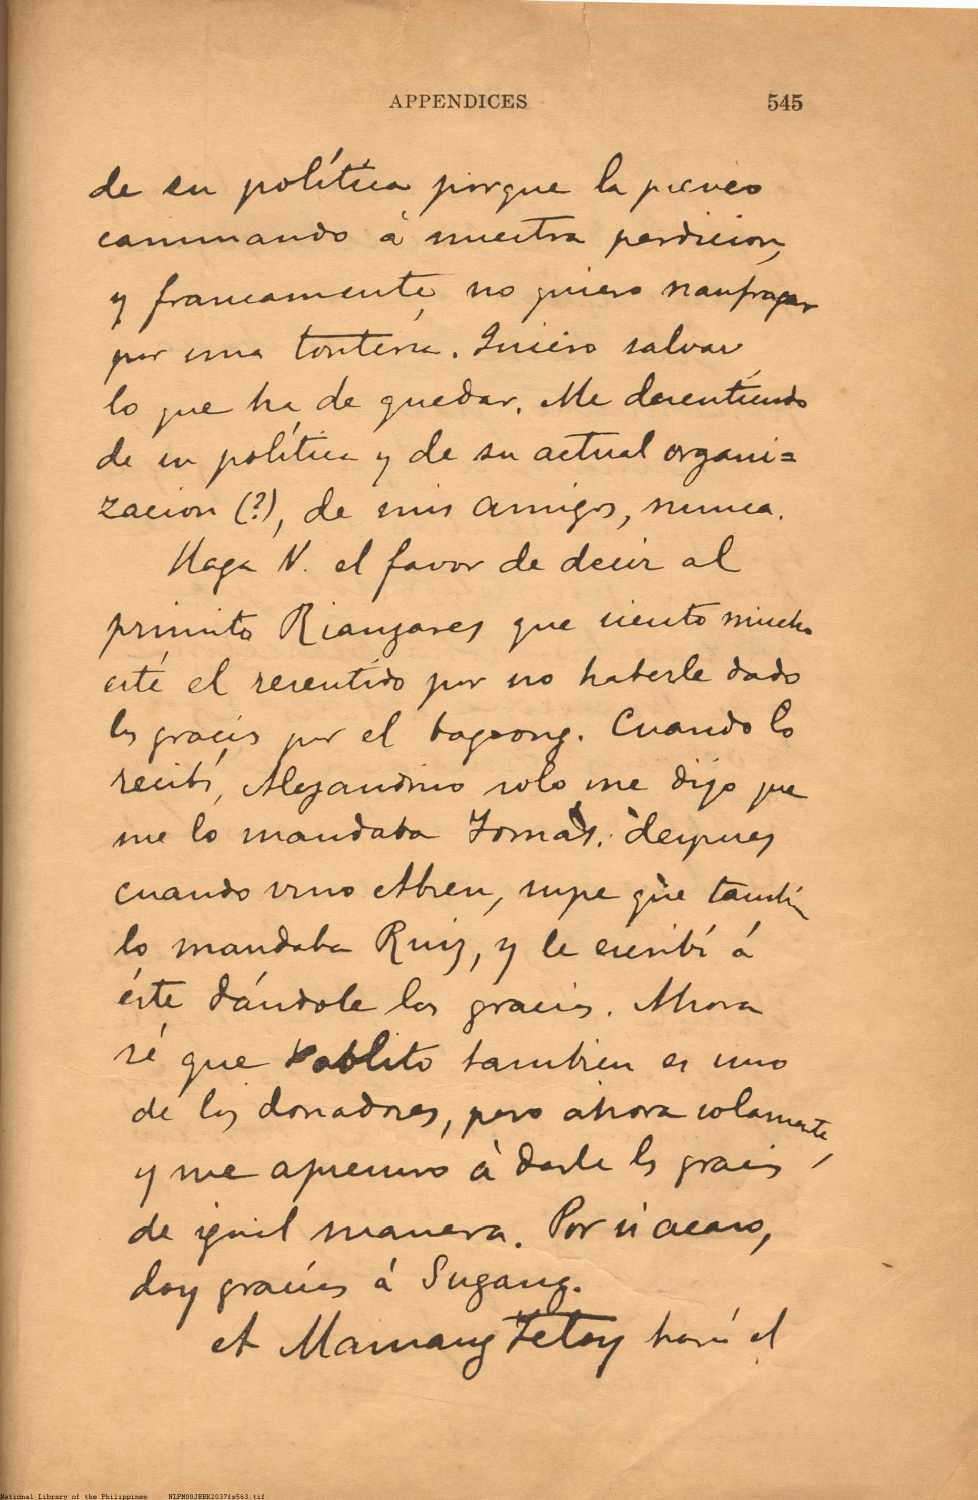 APPENDICES 545
de su política porque la preveo
caminando á nuestra perdicion,
y francamente, no quiero naufragar
por una tontería. Quiero salvar
lo que ha de quedar. Me desentiendo
de su política y de su actual organi=
zacion (?), de mis amigos, nunca.
Haga V. el favor de decir al
primito Rianzares que siento mucho
esté el resentido por no haberle dado
las gracias por el bagoong. Cuando lo
recibí, Alejandrino solo me dijo que
me lo mandaba Tomás. despues
cuando vino Abreu, supe que tambien
lo mandaba Ruiz, y le escribí á
éste dándole las gracias. Ahora
sé que Pablito tambien es uno
de los donadores, pero ahora solamente,
y me apresuro á darle las gracias
de igual manera. Por si acaso,
doy gracias á Sugang.
A Mamang Tetay hará el
National Library of the Philippines